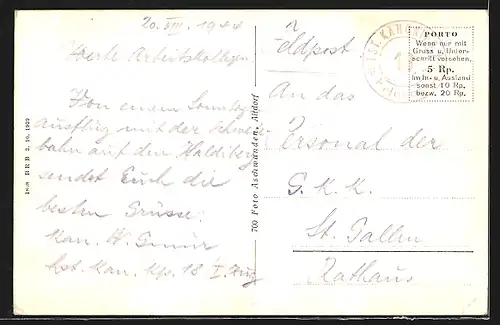 20. VIII. 1944
Werte Arbeitskollegen
Von einem Sonntags
ausflug mit der
bahn auf den Haldiberg
sendet Euch die
besten Grüsse:
Kan. W.
Fst. Kan. Kp. 18 I. Zug
18618 BRB 3. 10. 1922
700 Foto Aschwanden, Altdorf
Feldpost
PORTO
Wenn nur mit
Gruss u. Unter-
schrift versehen,
5 Rp.
im In- u. Ausland
sonst 10 Rp.
bezw. 20 Rp.
An das
Personal der
G. K. K.
St. Gallen
Rathaus